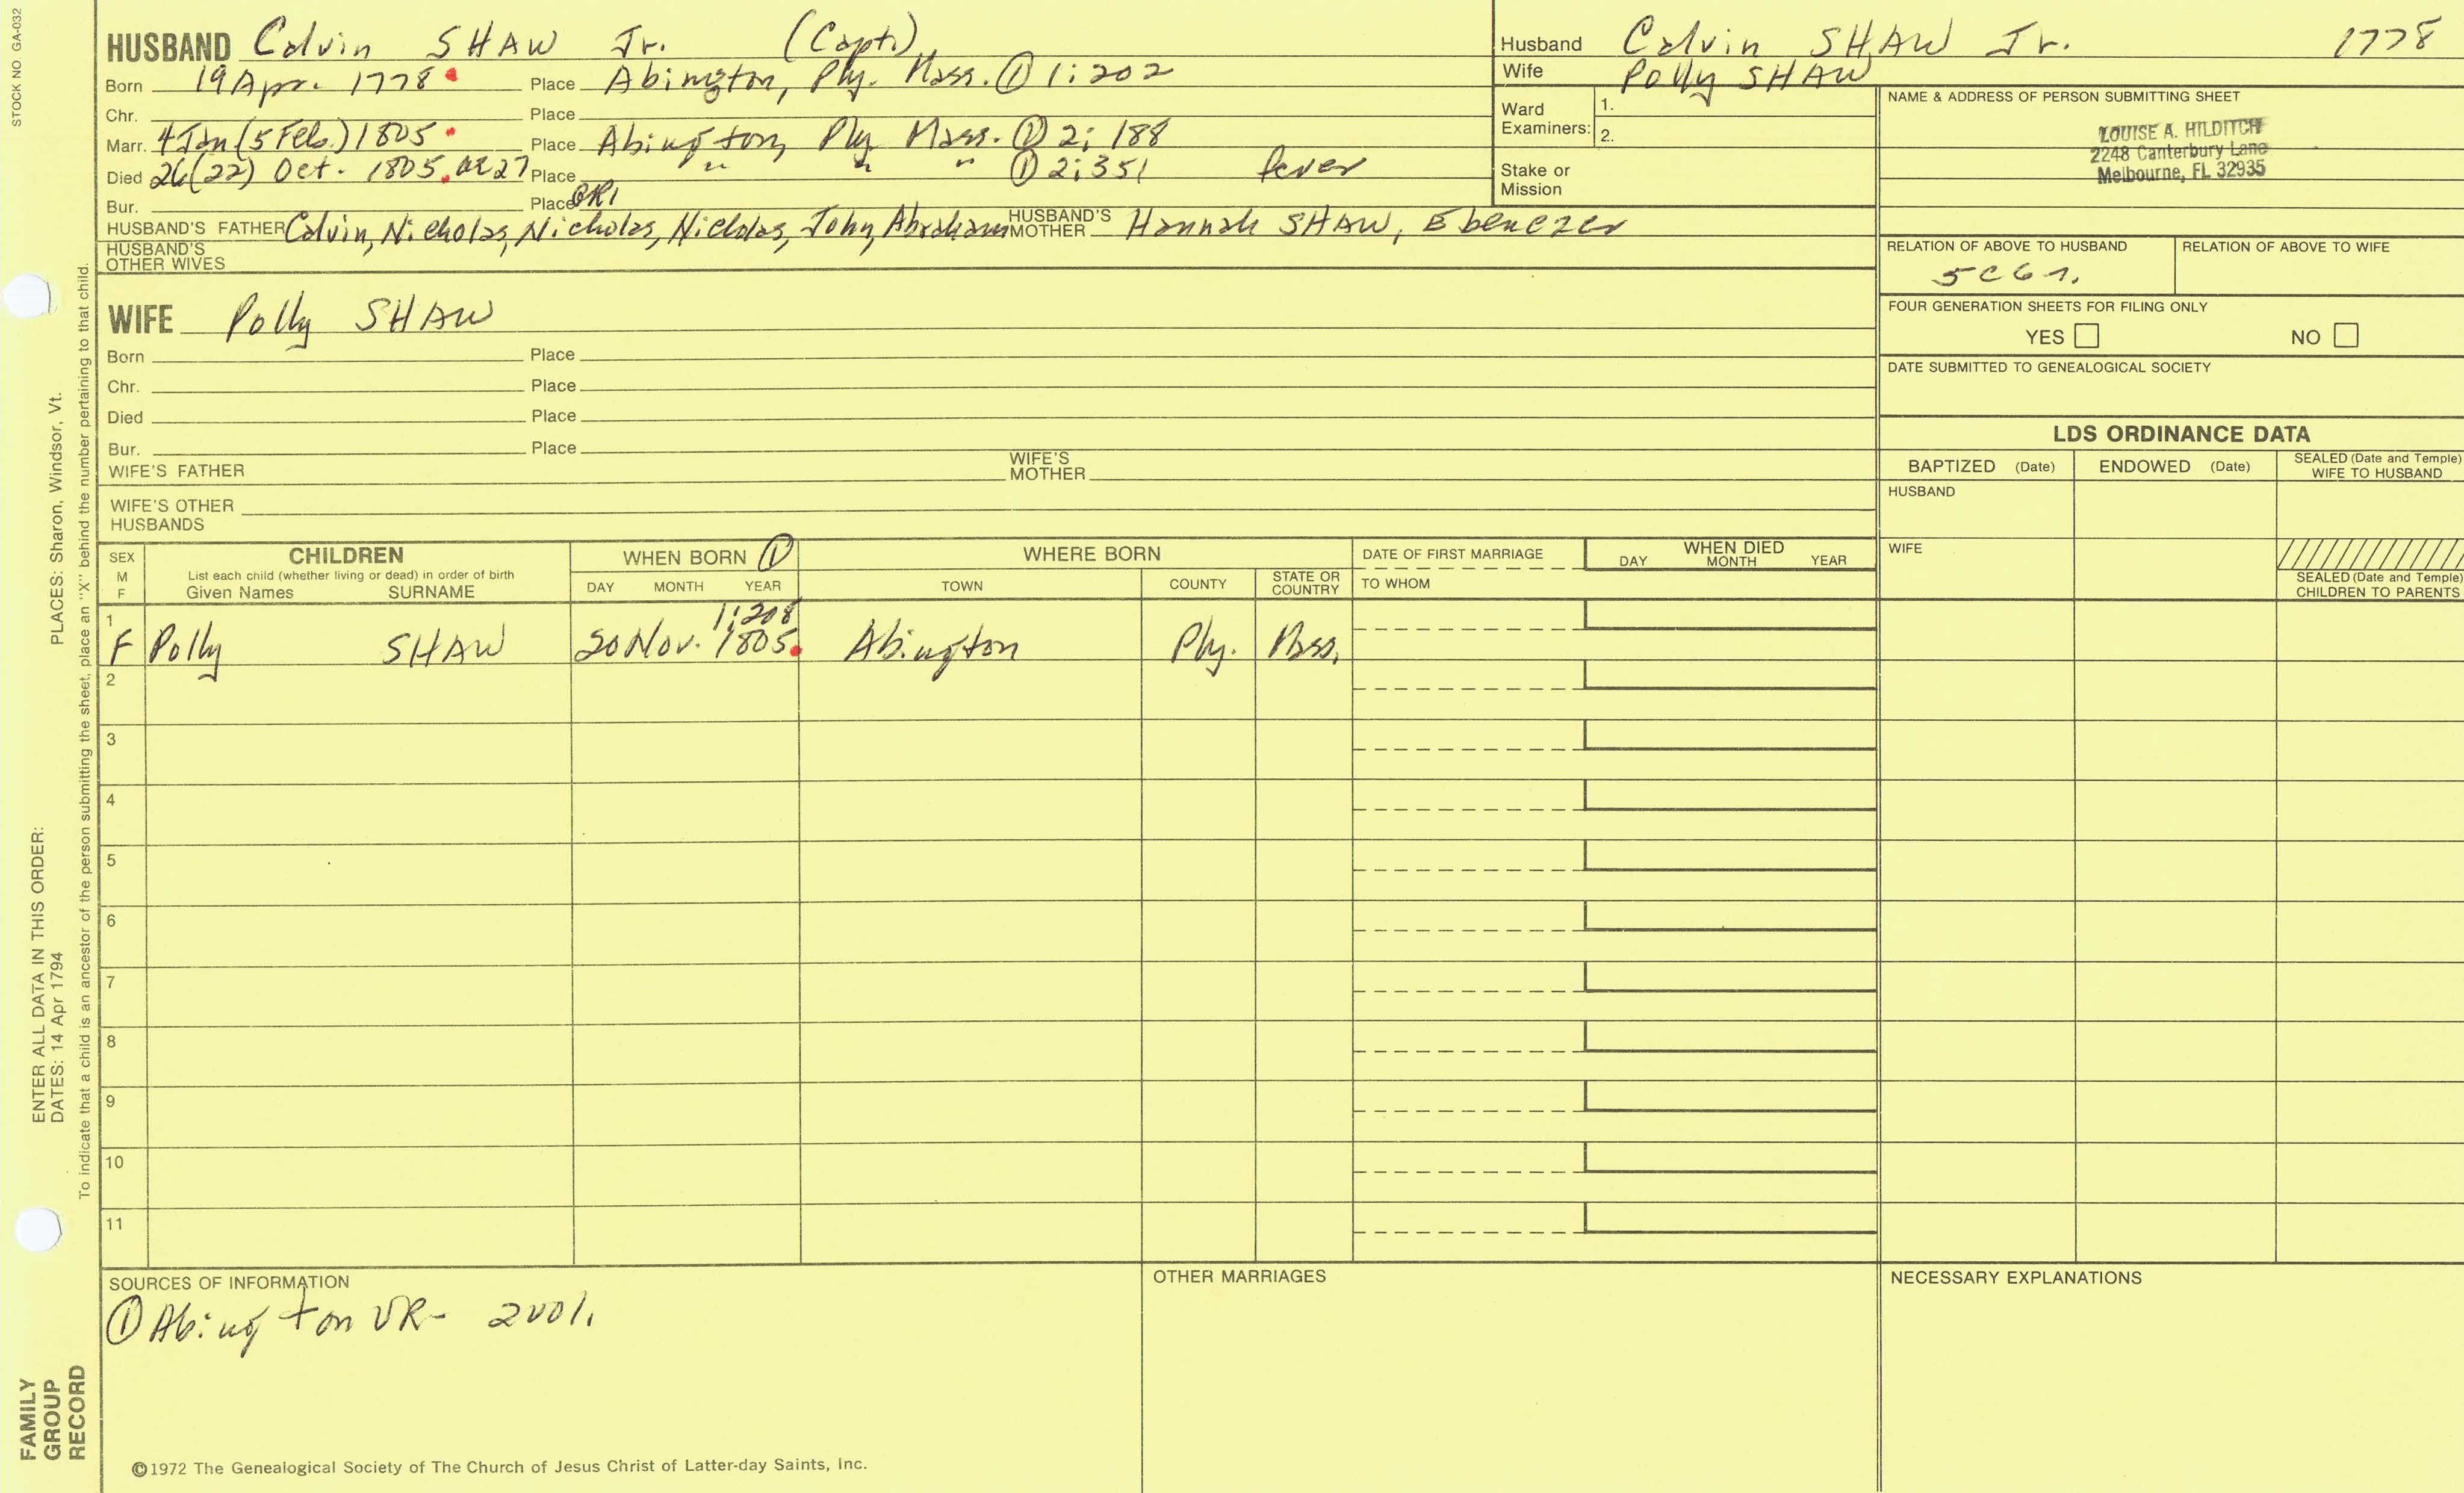 STOCK NO GA-032
HUSBAND Calvin SHAW Jr. (Capt.)
Born 19 Apr. 1778 Place Abington, Ply. Mass. ① 1:202
Chr. Place
Marr. 4 Jan (5 Feb.) 1805 Place Abington, Ply Mass. ① 2:188
Died 26(22) Oct. 1805. ae 27 Place " " " ① 2:351 fever
Bur. Place GR1
HUSBAND'S FATHER Calvin, Nicholas, Nicholas, Nicholas, John, Abraham HUSBAND'S MOTHER Hannah SHAW, Ebenezer
HUSBAND'S OTHER WIVES
WIFE Polly SHAW
Born Place
Chr. Place
Died Place
Bur. Place
WIFE'S FATHER WIFE'S MOTHER
WIFE'S OTHER HUSBANDS
Husband Calvin SHAW Jr. 1778
Wife Polly SHAW
Ward Examiners: 1.
2.
Stake or Mission
NAME & ADDRESS OF PERSON SUBMITTING SHEET
LOUISE A. HILDITCH
2248 Canterbury Lane
Melbourne, FL 32935
RELATION OF ABOVE TO HUSBAND RELATION OF ABOVE TO WIFE
5C6r.
FOUR GENERATION SHEETS FOR FILING ONLY
YES NO
DATE SUBMITTED TO GENEALOGICAL SOCIETY
LDS ORDINANCE DATA
BAPTIZED (Date) ENDOWED (Date) SEALED (Date and Temple) WIFE TO HUSBAND
HUSBAND
WIFE
SEALED (Date and Temple) CHILDREN TO PARENTS
SEX M F CHILDREN List each child (whether living or dead) in order of birth Given Names SURNAME
WHEN BORN ① DAY MONTH YEAR
WHERE BORN TOWN COUNTY STATE OR COUNTRY
DATE OF FIRST MARRIAGE TO WHOM
WHEN DIED DAY MONTH YEAR
1:208
1 F Polly SHAW 20 Nov. 1805. Abington Ply. Mass.
2
3
4
5
6
7
8
9
10
11
SOURCES OF INFORMATION
① Abington VR- 2vol.
OTHER MARRIAGES
NECESSARY EXPLANATIONS
©1972 The Genealogical Society of The Church of Jesus Christ of Latter-day Saints, Inc.
FAMILY GROUP RECORD
ENTER ALL DATA IN THIS ORDER:
DATES: 14 Apr 1794 PLACES: Sharon, Windsor, Vt.
To indicate that a child is an ancestor of the person submitting the sheet, place an "X" behind the number pertaining to that child.